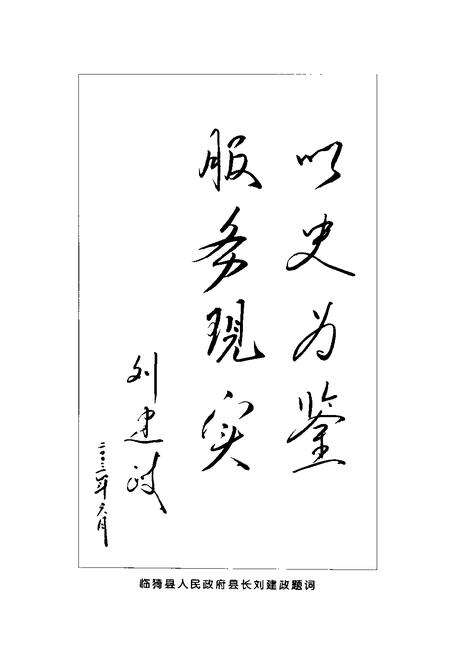 以史为鉴
服务现实
刘建政
二〇〇三年六月
临猗县人民政府县长刘建政题词